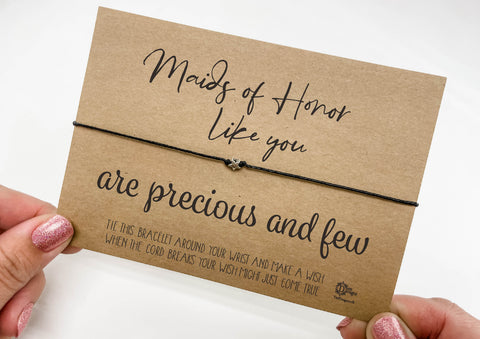 Maids of Honor
Like you
are precious and few
TIE THIS BRACELET AROUND YOUR WRIST AND MAKE A WISH
WHEN THE CORD BREAKS YOUR WISH MIGHT JUST COME TRUE